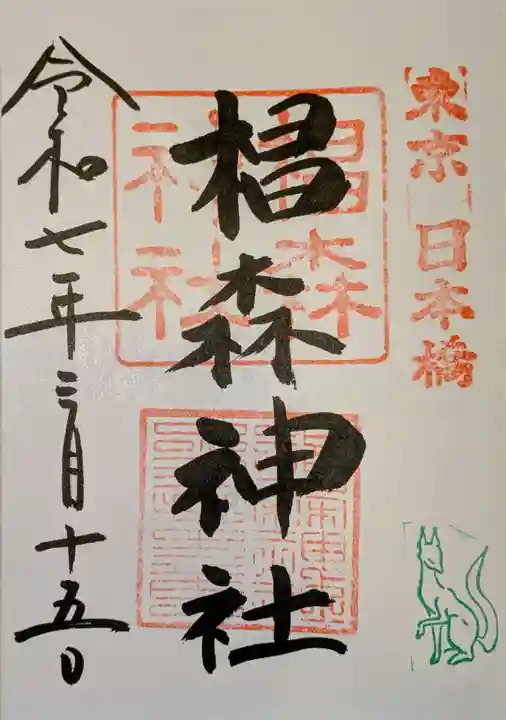 東京 日本橋
椙森神社
椙森
神社
令和七年三月十五日